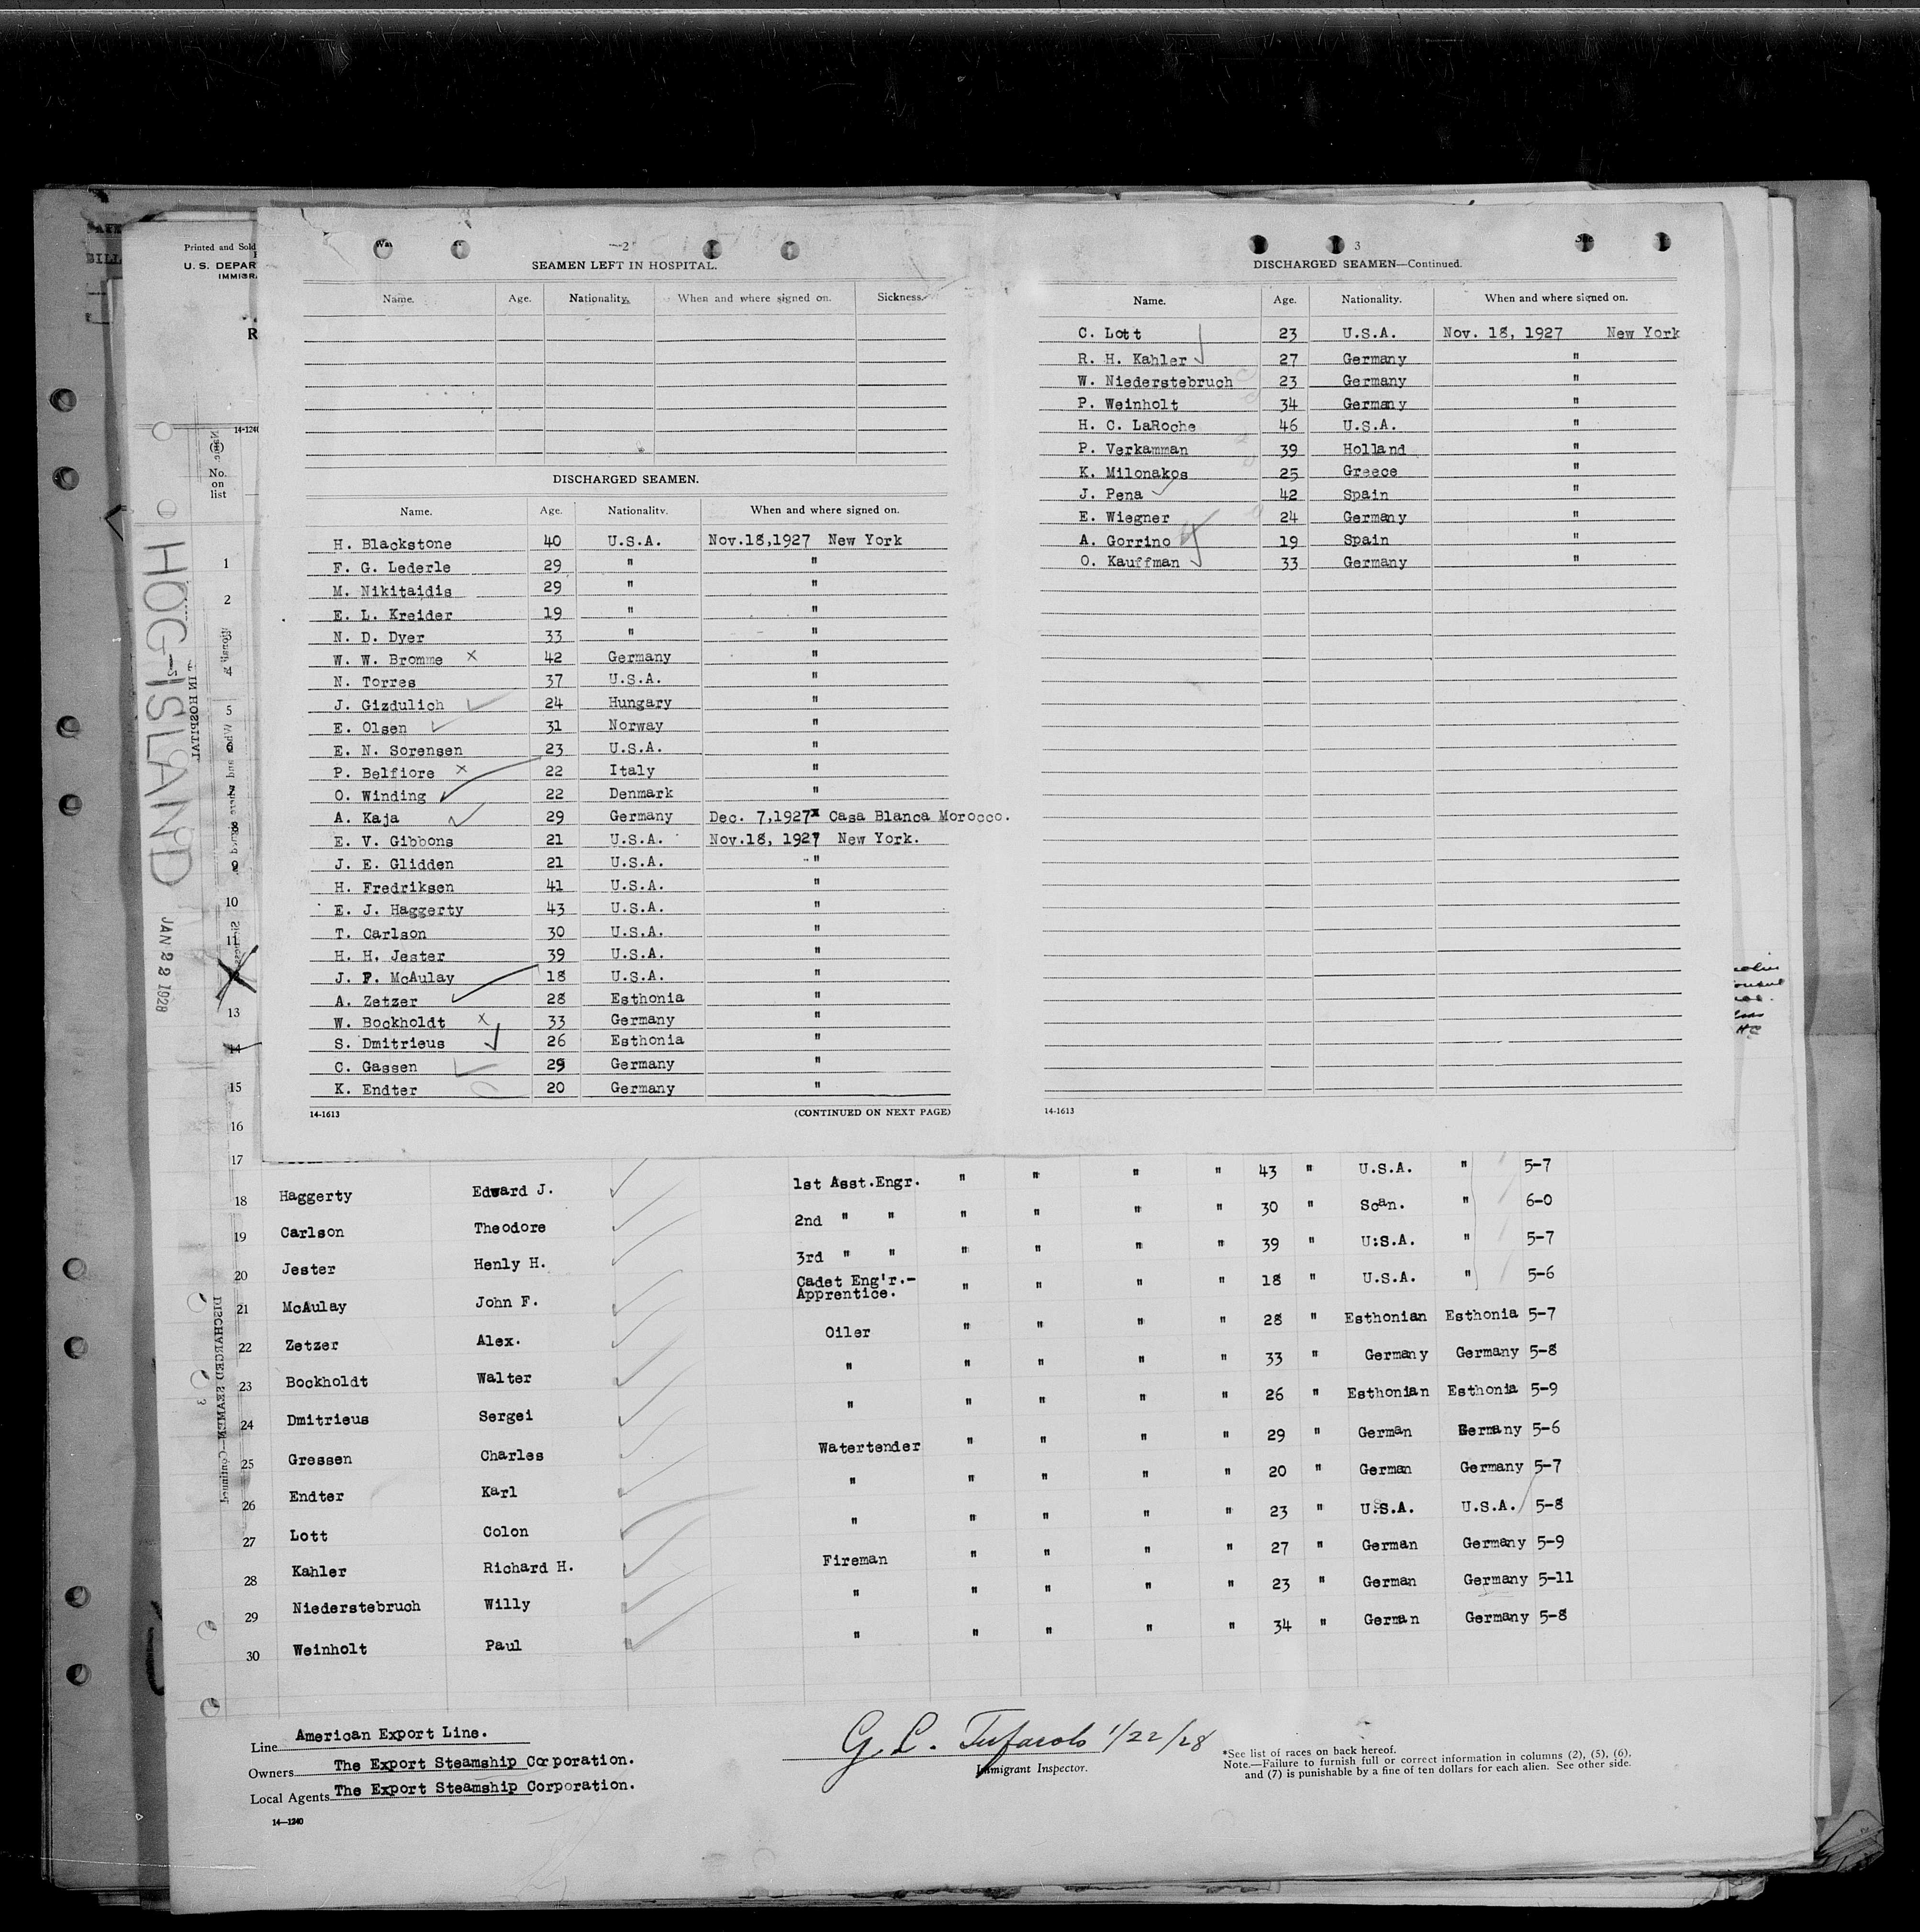 Printed and Sold
U. S. DEPAR
IMMIGR
R
14-1240
No.
on
list
HOG-ISLAND
JAN 22 1928
2
SEAMEN LEFT IN HOSPITAL.
Name. Age. Nationality. When and where signed on. Sickness.
DISCHARGED SEAMEN.
Name. Age. Nationality. When and where signed on.
H. Blackstone 40 U.S.A. Nov.18,1927 New York
F. G. Lederle 29 " "
M. Nikitaidis 29 " "
E. L. Kreider 19 " "
N. D. Dyer 33 " "
W. W. Bromme x 42 Germany "
N. Torres 37 U.S.A. "
J. Gizdulich 24 Hungary "
E. Olsen 31 Norway "
E. N. Sorensen 23 U.S.A. "
P. Belfiore x 22 Italy "
O. Winding 22 Denmark "
A. Kaja 29 Germany Dec. 7,1927 Casa Blanca Morocco.
E. V. Gibbons 21 U.S.A. Nov.18, 1927 New York.
J. E. Glidden 21 U.S.A. "
H. Fredriksen 41 U.S.A. "
E. J. Haggerty 43 U.S.A. "
T. Carlson 30 U.S.A. "
H. H. Jester 39 U.S.A. "
J. F. McAulay 18 U.S.A. "
A. Zetzer 28 Esthonia "
W. Bockholdt x 33 Germany "
S. Dmitrieus 26 Esthonia "
C. Gassen 29 Germany "
K. Endter 20 Germany "
14-1613 (CONTINUED ON NEXT PAGE)
3
DISCHARGED SEAMEN—Continued.
Name. Age. Nationality. When and where signed on.
C. Lott 23 U.S.A. Nov. 18, 1927 New York
R. H. Kahler 27 Germany "
W. Niederstebruch 23 Germany "
P. Weinholt 34 Germany "
H. C. LaRoche 46 U.S.A. "
P. Verkamman 39 Holland "
K. Milonakos 25 Greece "
J. Pena 42 Spain "
E. Wiegner 24 Germany "
A. Gorrino 19 Spain "
O. Kauffman 33 Germany "
14-1613
1
2
4
5
10
11
13
14
15
16
17
18 Haggerty Edward J. 1st Asst.Engr. " " " " 43 " U.S.A. " 5-7
19 Carlson Theodore 2nd " " " " " " 30 " Scan. " 6-0
20 Jester Henly H. 3rd " " " " " " 39 " U.S.A. " 5-7
21 McAulay John F. Cadet Eng'r.-Apprentice. " " " " 18 " U.S.A. " 5-6
22 Zetzer Alex. Oiler " " " " 28 " Esthonian Esthonia 5-7
23 Bockholdt Walter " " " " " 33 " Germany Germany 5-8
24 Dmitrieus Sergei " " " " " 26 " Esthonian Esthonia 5-9
25 Gressen Charles Watertender " " " " 29 " German Germany 5-6
26 Endter Karl " " " " " 20 " German Germany 5-7
27 Lott Colon " " " " " 23 " U.S.A. U.S.A. 5-8
28 Kahler Richard H. Fireman " " " " 27 " German Germany 5-9
29 Niederstebruch Willy " " " " " 23 " German Germany 5-11
30 Weinholt Paul " " " " " 34 " German Germany 5-8
Line American Export Line.
Owners The Export Steamship Corporation.
Local Agents The Export Steamship Corporation.
14—1240
G. L. Tufarolo 1/22/28
Immigrant Inspector.
*See list of races on back hereof.
Note.—Failure to furnish full or correct information in columns (2), (5), (6),
and (7) is punishable by a fine of ten dollars for each alien. See other side.